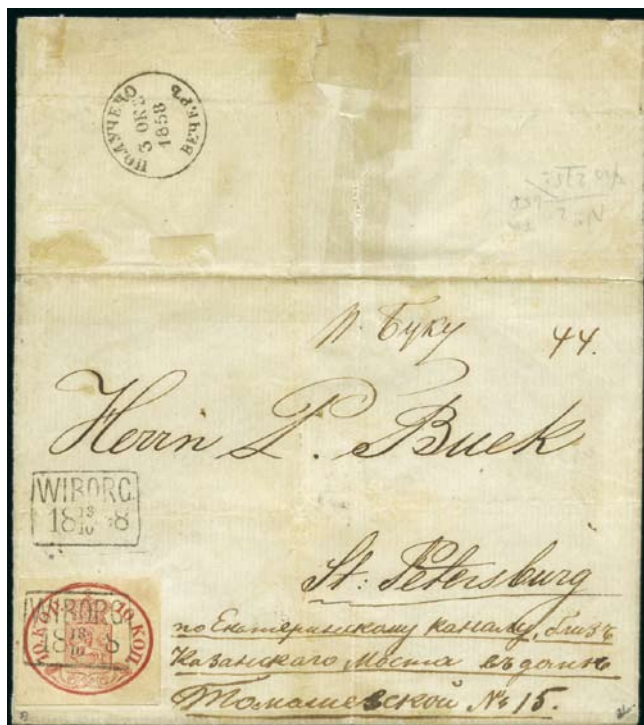 ПОЛУЧЕНО
3 ОКТ.
1858
ВЕЧЕР.
П. Буку 44.
Herrn P. Buck
WIBORG.
18 13/10 58
St: Petersburg
по Екатеринскому каналу, близъ
Казанскаго Моста въ домѣ
Томашевской № 15.
WIBORG.
18 13/10 58
10 КОП. 10 КОП.